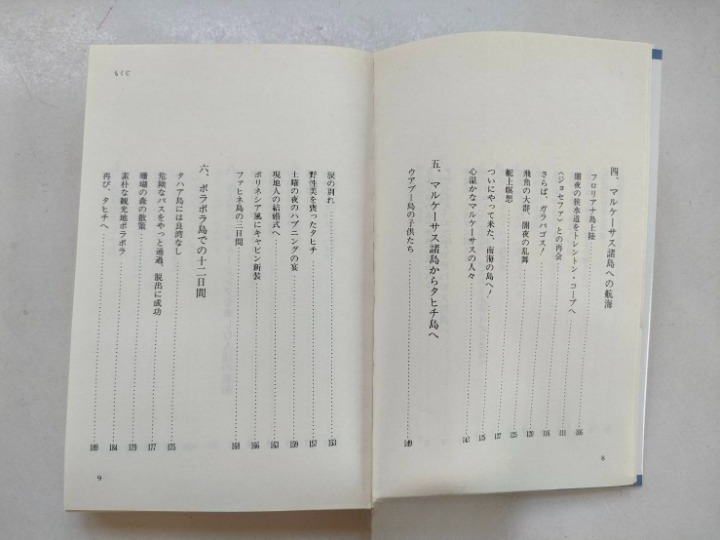 四、マルケーサス諸島への航海
フロリアナ島上陸
闇夜の狭水道をトレントン・コーブへ
〈ジョセファ〉との再会 111
さらば、ガラパゴス! 116
飛魚の大群、闇夜の乱舞 120
艇上瞑想 125
ついにやって来た、南海の島へ! 137
心温かなマルケーサスの人々
五、マルケーサス諸島からタヒチ島へ
ウアプー島の子供たち 149
8
もくじ
涙の別れ 153
野性美を襲ったタヒチ 157
土曜の夜のハプニングの宴 159
現地人の結婚式へ 163
ポリネシア風にキャビン新装 166
ファヒネ島の三日間 168
六、ボラボラ島での十二日間
タハア島には良湾なし 175
危険なパスをやっと通過、脱出に成功 177
珊瑚の森の散策 179
素朴な観光地ボラボラ 184
再び、タヒチへ 189
9